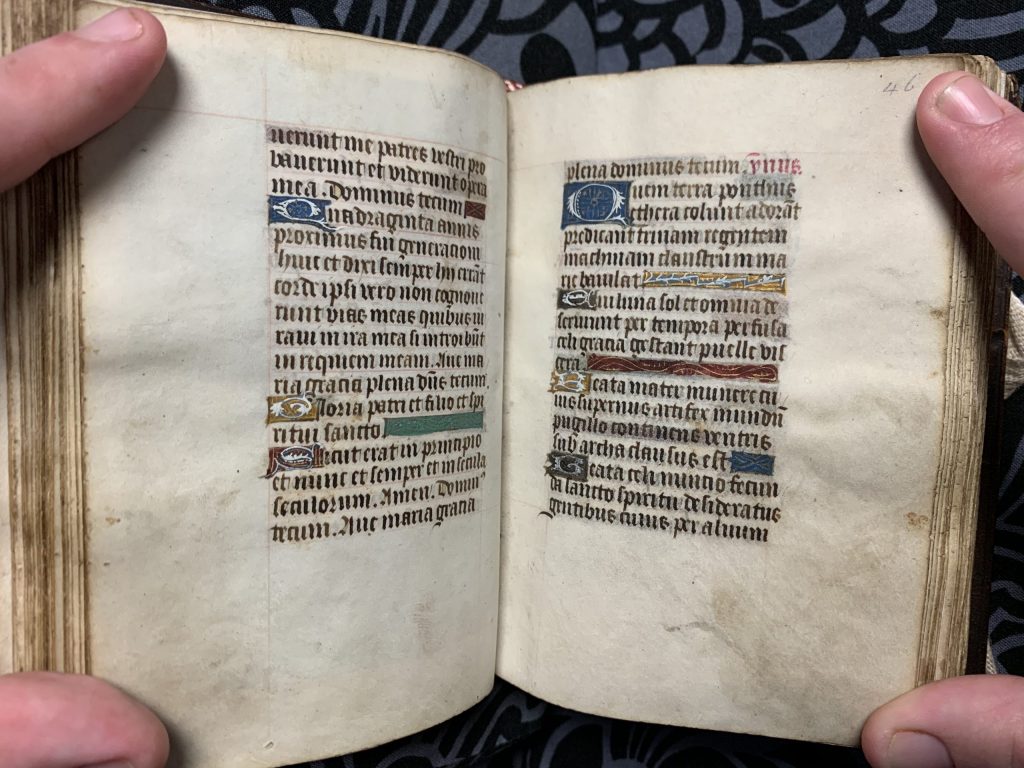 uerunt me patres vestri pro
bauerunt et viderunt opera
mea. Dominus tecum
Quadraginta annis
proximus fui generacioni
huic et dixi semper hii errāt
corde ipsi vero non cognoue
runt vias meas quibus iu
raui in ira mea si introibūt
in requiem meam. Aue ma
ria gracia plena dn̄s tecum
Gloria patri et filio et spi
ritui sancto
Sicut erat in principio
et nunc et semper et in secula
seculorum. Amen. Domin᷒
tecum. Aue maria gracia
46
plena dominus tecum. ymnus.
Quem terra ponthus
ethera colunt adorāt
predicant trinam regentem
machinam claustrum ma
rie baiulat
Cui luna sol et omnia de
seruiunt per tempora perfusa
celi gracia gestant puelle vis
cera
Beata mater munere cu
ius supernus artifex mundū
pugillo continens ventris
sub archa clausus est
Beata celi nuncio fecun
da sancto spiritu desideratus
gentibus cuius per aluum